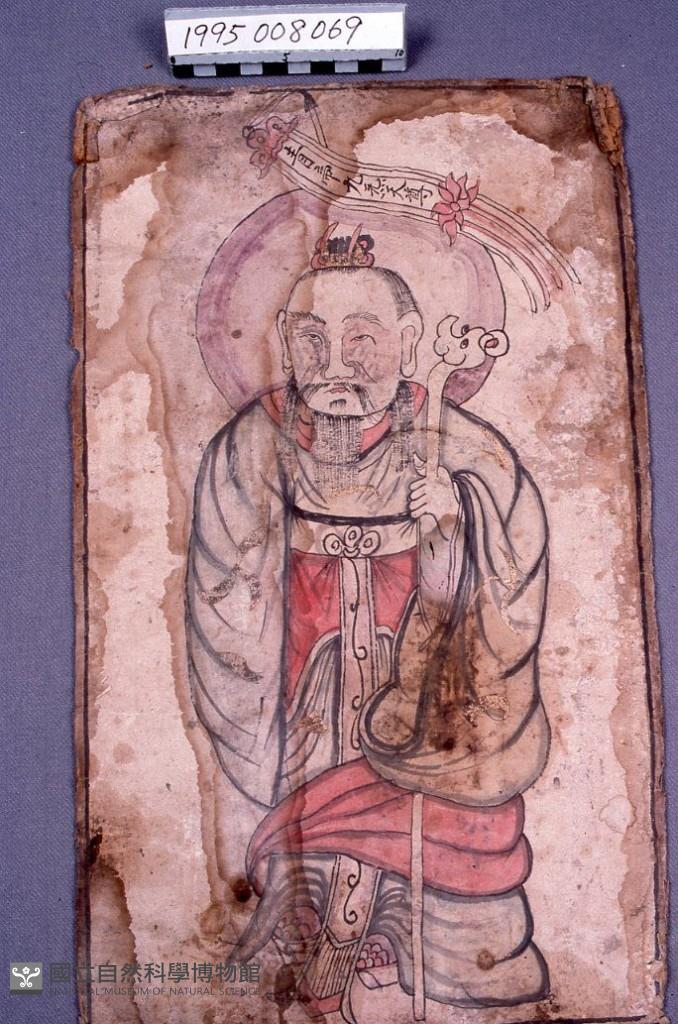 1995 008069
10
九炁天尊
國立自然科學博物館
NATIONAL MUSEUM OF NATURAL SCIENCE